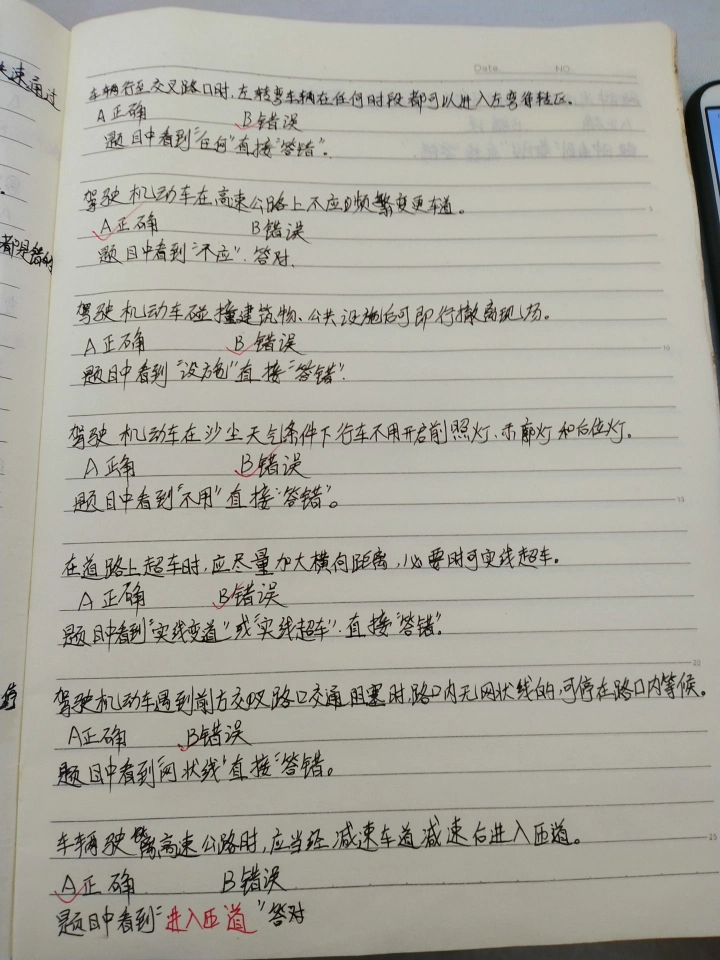 速通过
都是错的
Date. NO.
车辆行至交叉路口时,左转弯车辆在任何时段都可以进入左弯待转区。
A正确 B错误
题目中看到"任何"直接"答错"。
驾驶机动车在高速公路上不应频繁变更车道。
A正确 B错误
题目中看到"不应"答对.
驾驶机动车碰撞建筑物、公共设施后可即行撤离现场。
A正确 B错误
题目中看到"设施"直接"答错".
驾驶机动车在沙尘天气条件下行车不用开启前照灯、示廓灯和后位灯。
A正角 B错误
题目中看到"不用"直接"答错"。
在道路上超车时,应尽量加大横向距离,必要时可实线超车。
A正确 B错误
题目中看到"实线变道"或"实线超车"直接"答错"。
驾驶机动车遇到前方交叉路口交通阻塞时,路口内无网状线的,可停在路口内等候。
A正确 B错误
题目中看到"网状线"直接"答错。
车辆驶离高速公路时,应当经减速车道减速后进入匝道。
A正确 B错误
题目中看到"进入匝道"答对
5
10
15
20
25